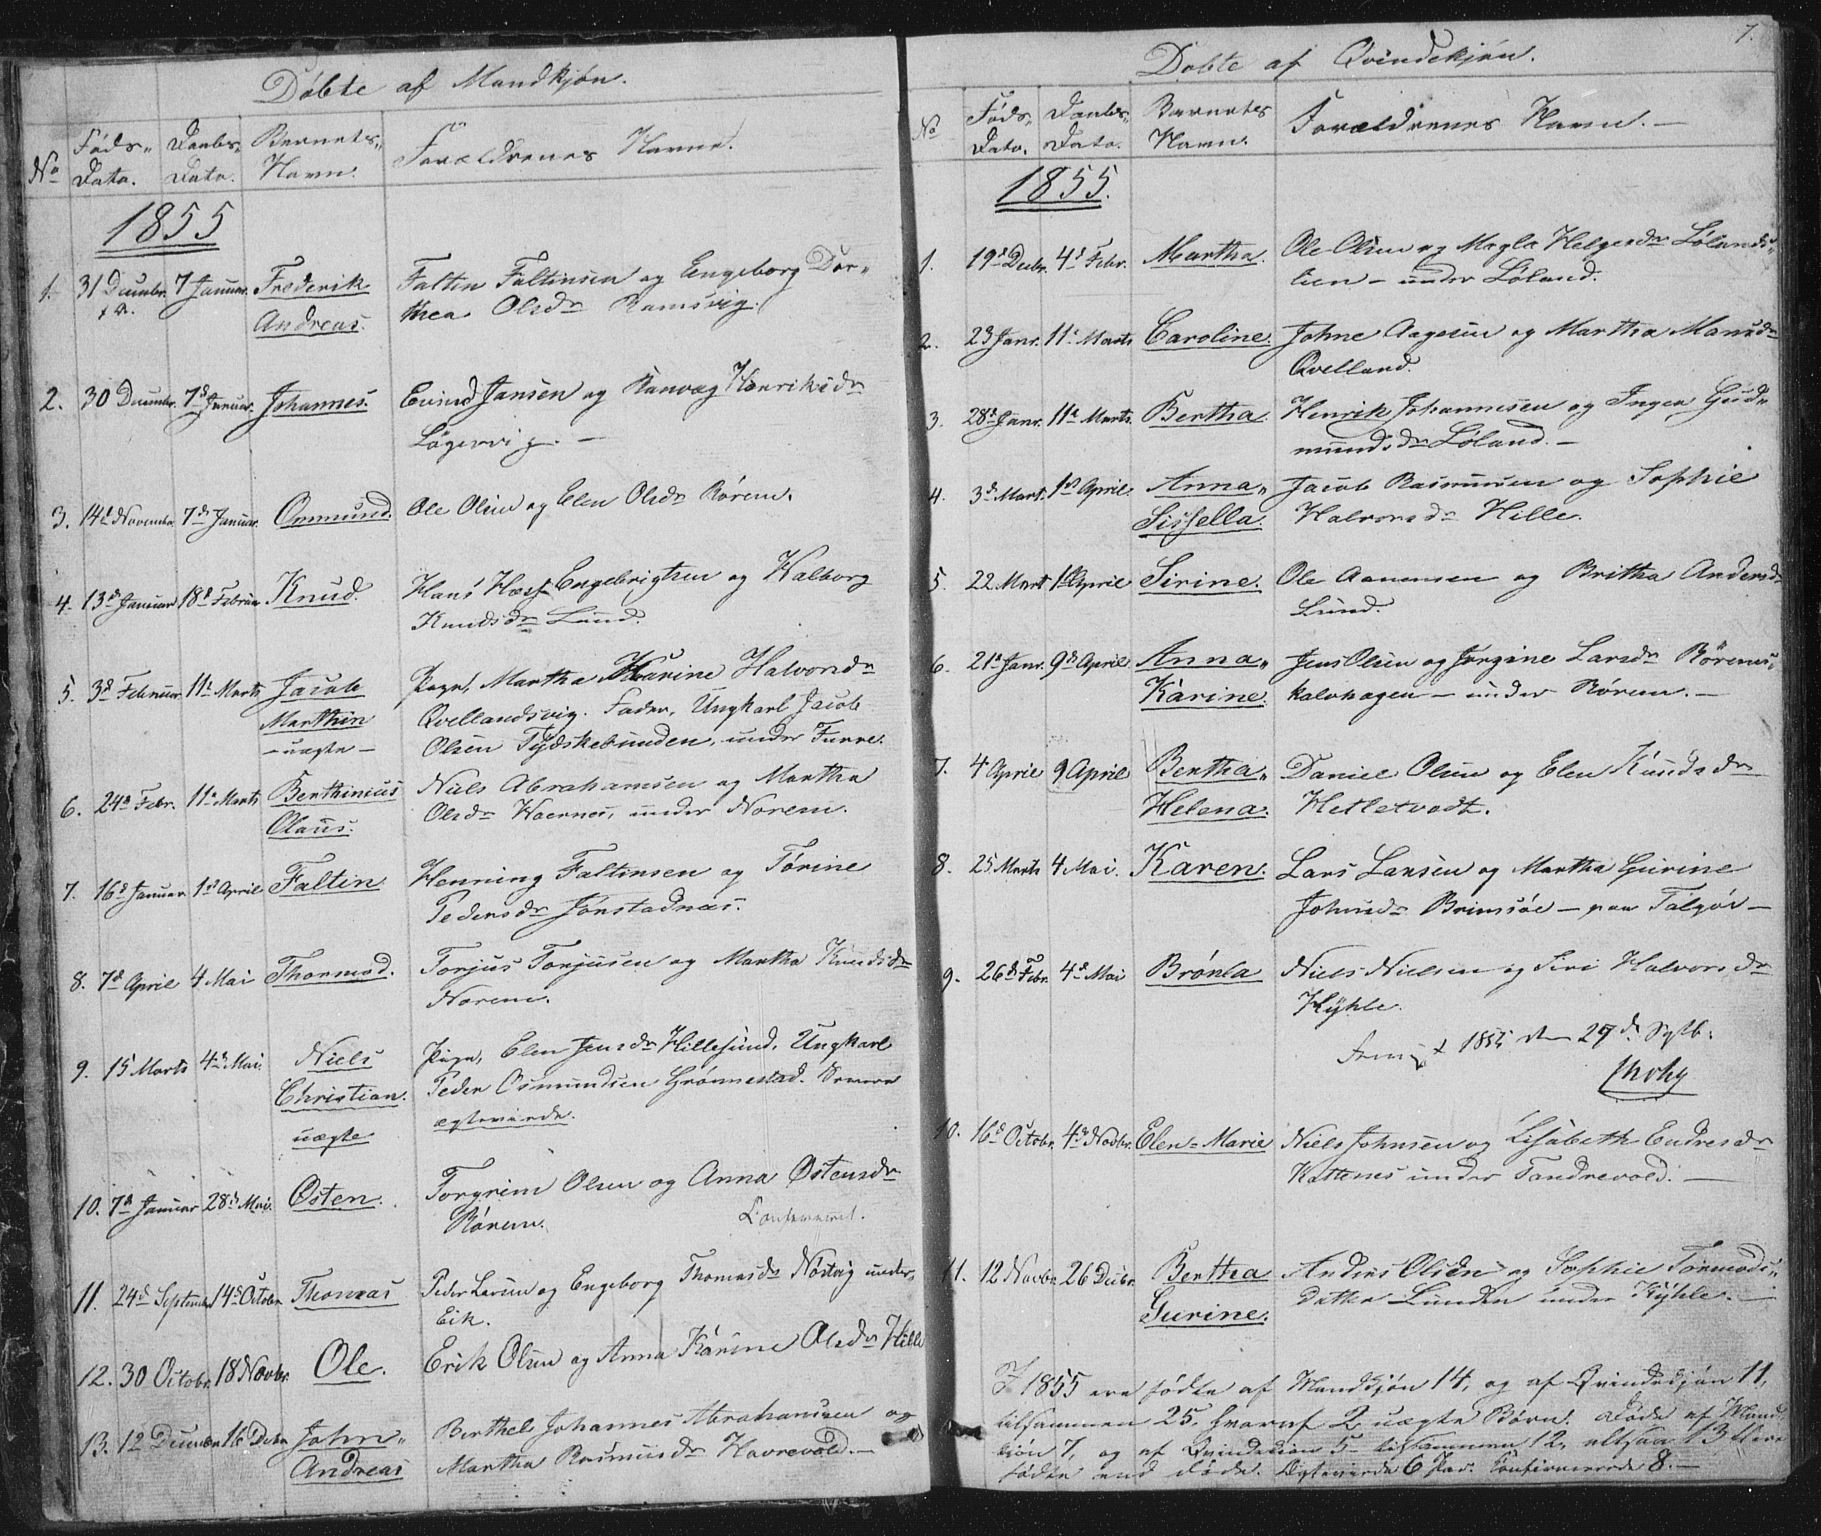 Döbte af Mandkjön.
No
Föds„ Data.
Daabs„ Data.
Barnets„ Navn.
Forældrenes Navne.
1855
1. 31 Decembr. 7 Januar. Frederik Faltin Faltinsen og Engeborg Dor„
Andreas. thea Olsdr Ramsvig.
2. 30 Decembr. 7d Januar. Johannes. Eivind Jansen og Ranvæg Henriksdr
Lögervig. —
3. 14d Novembr. 7d Januar. Ommund. Ole Olsen og Elen Olsdr Rörem.
4. 13d Januar 18d Februar Knud. Hans Engebrigtsen og Valborg
Knudsdr Lund.
5. 3d Februar 11d Marts Jacob Pige, Martha Karine Halvorsdr
Marthin Qvellandsvig. Fader, Ungkarl Jacob
– uægte – Olsen Tydskebunden, under Furre.
6. 24d Febr. 11d Marts Berthinius Niels Abrahamsen og Martha
Olaus. Olsdr Waernes, under Norem.
7. 16d Januar 1ste April Faltin Henning Faltinsen og Torine
Pedersdr Jonstadnæs.
8. 7d April 4 Mai Thormod. Torjus Torjusen og Martha Knudsdr
Norem.
9. 15 Marts 4d Mai. Niels Pige, Elen Jensdr Hillesund. Ungkarl
Christian. Peder Osmundsen Grönnestad. Senere
uægte ægteviede.
10. 7d Januar 28d Mai. Östen. Torgrim Olsen og Anna Östensdr
Rörem. Confirmeret.
11. 24d Septembr 14d Octobr Thomas Peder Larsen og Engeborg Thomasdr Nostvig under
Eik.
12. 30 Octobr. 18 Novbr. Ole. Erik Olsen og Anna Karine Olsdr Hille
13. 12 Decembr 16 Decbr John„ Berthel Johannes Abrahamsen og
Andreas Martha Rasmusdr Havrevold. —
7.
Döbte af Qvindekjön.
No
Föds„ Data.
Daabs„ Data.
Barnets Navn.
Forældrenes Navn. —
1855.
1. 19d Decbr. 4d Febr. Martha. Ole Olsen og Magla Helgesdr Lölands„
lien – under Löland.
2. 23 Janr. 11d Marts Caroline. Johne Aagesen og Martha Monsdr
Qvelland.
3. 28d Janr. 11d Marts. Bertha Henrik Johannesen og Ingea Gud„
mundsdr Löland. —
4. 3d Mart. 1ste April. Anna„ Jacob Rasmussen og Sophie
Sissella. Halvorsdr Hille.
5. 22 Marts 1ste April Sirine. Ole Aanensen og Britha Andersdr
Lund.
6. 21d Janr. 9d April. Anna„ Jens Olsen og Jorgine Larsdr Rörems„
Karine. kalvhagen – under Rörem. —
7. 4 April 9 April Bertha„ Daniel Olsen og Elen Knudsdr
Helena. Hetletvedt.
8. 25 Marts 4 Mai. Karen. Lars Larsen og Martha Gurine
Johnsdr Brimsöe – paa Talgöe –
9. 26d Febr. 4d Mai Brönla Niels Nielsen og Siri Halvorsdr
Kyhle.
29d Septb.
10. 16d Octobr. 4d Novbr. Elen-Marie Niels Johnsen og Lisabeth Endresdr
Kattenes under Tandrevold. —
11. 12 Novbr 26 Decbr. Bertha Anders Olsen og Sophie Tormods„
Gurine. datter Lunden under Kyhle. —
I 1855 ere födte af Mandkjön 14, og af Qvindekjön 11,
tilsammen 25, hvoraf 2 uægte Börn. Döde af Mand„
kjön 7, og af Qvindekjön 5 – tilsammen 12, altsaa 13 flere
födte end döde. Ægteviede 6 Par. Confirmerede 8. —